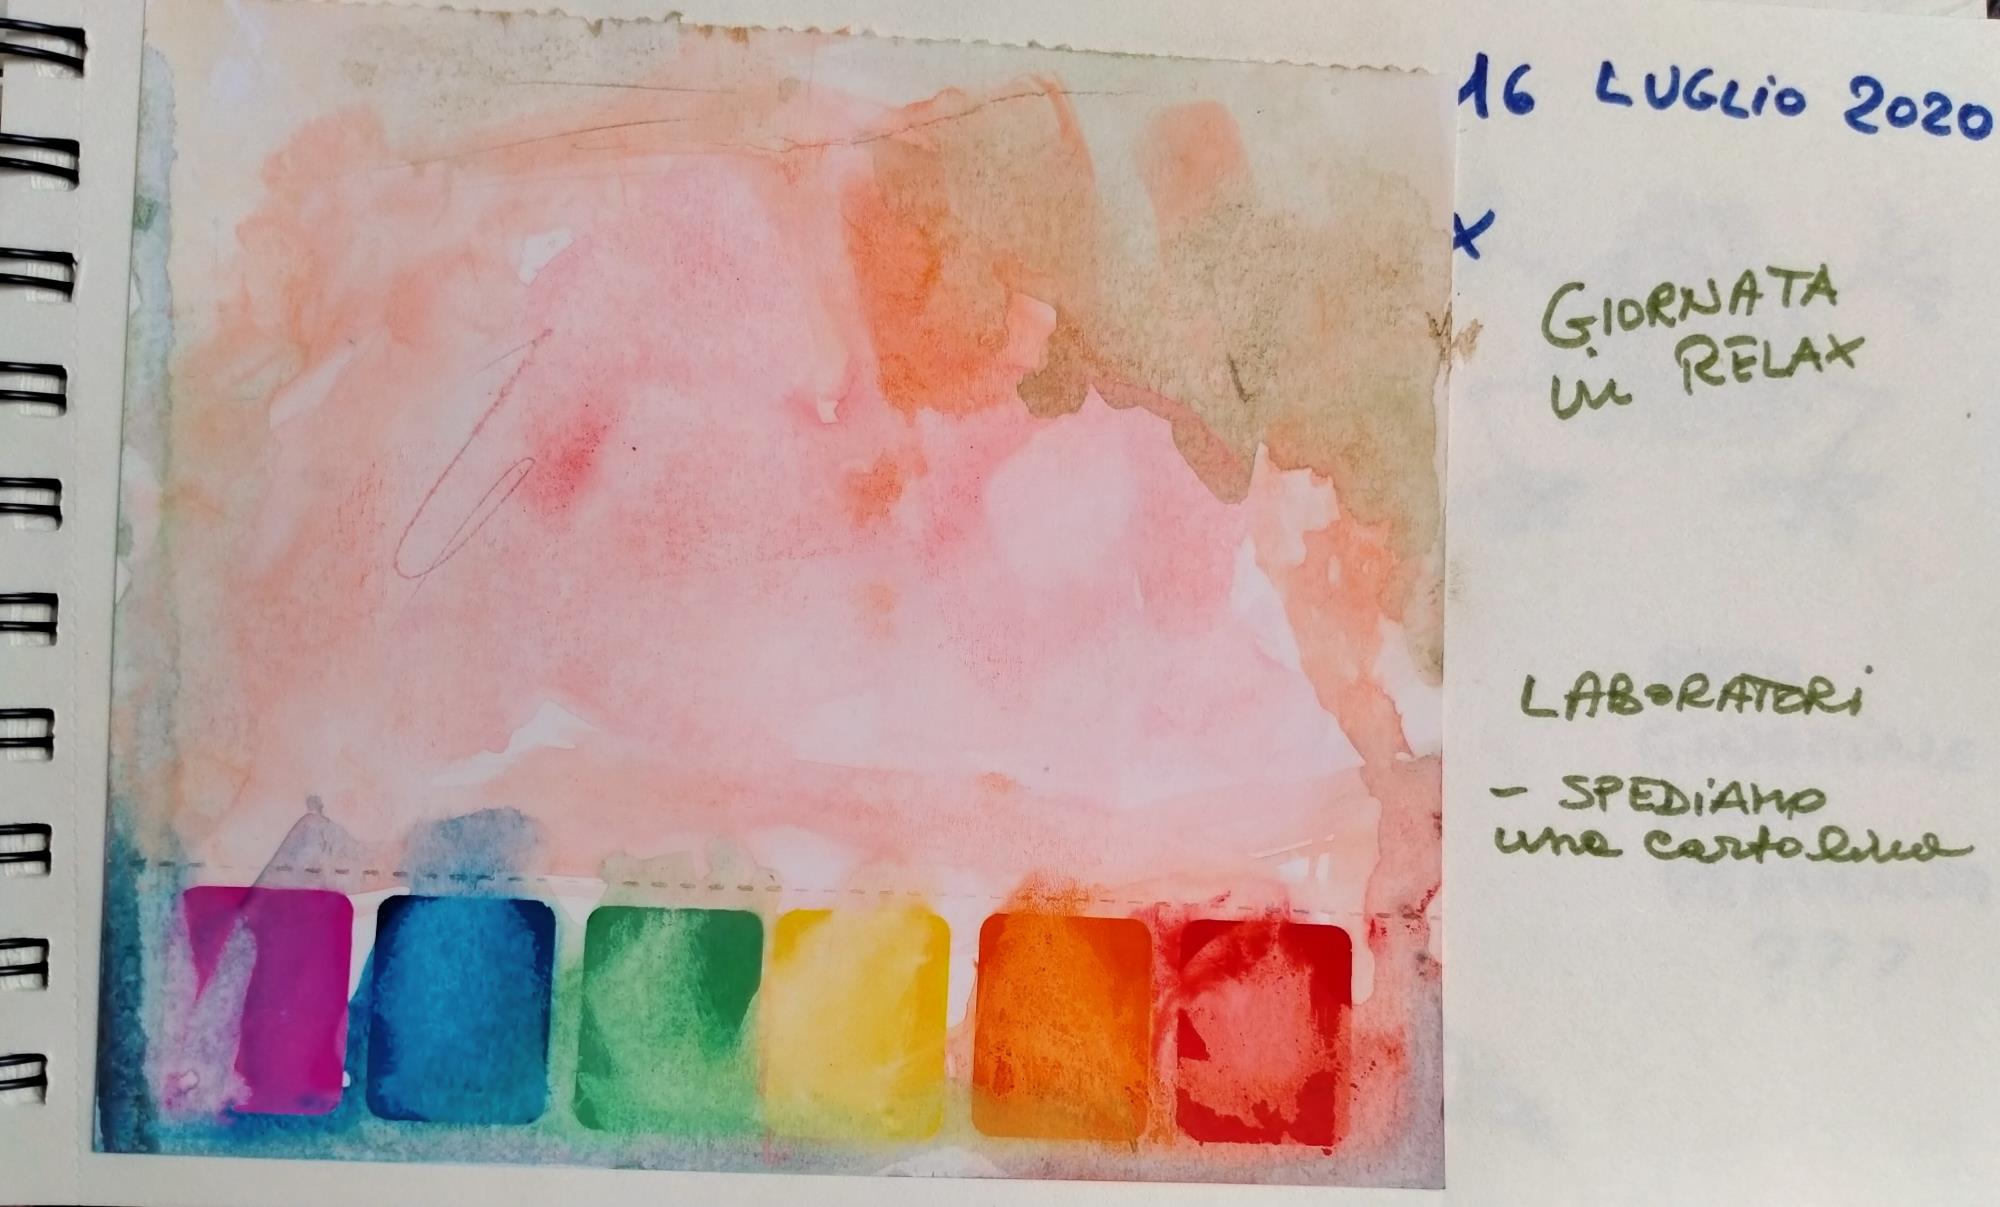 16 LUGLiO 2020
x
GIORNATA
in RELAX
LABORATORi
- SPEDiAMO
una cartolina